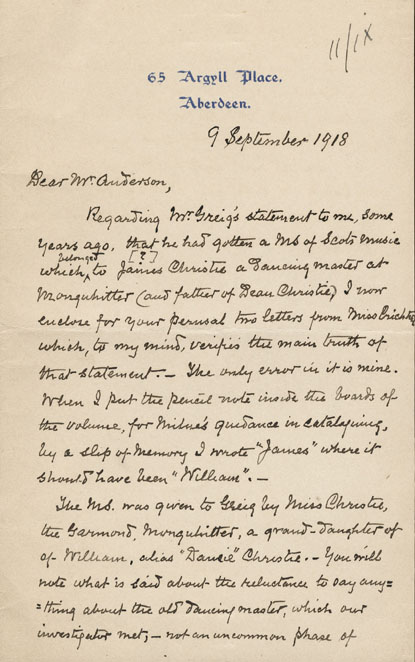 11/IX
65 Argyll Place,
Aberdeen.
9 September 1918
Dear Mr. Anderson,
Regarding Mr Greig's statement to me, some
years ago, that he had gotten a MS of Scots music
belonged [?]
which, to James Christie a Dancing master at
Monquhitter (and father of Dean Christie) I now
enclose for your perusal two letters from Miss Crichton
which, to my mind, verifies the main truth of
that statement. — The only error in it is mine.
When I put the pencil note inside the boards of
the volume, for Milne's guidance in cataloging,
by a slip of memory I wrote "James" where it
should have been "William". —
The MS. was given to Greig by Miss Christie,
the Garmond, Monquhitter, a grand-daughter of
of William, alias "Dancie" Christie. — You will
note what is said about the reluctance to say any=
=thing about the old dancing master, which our
investigator met, — not an uncommon phase of